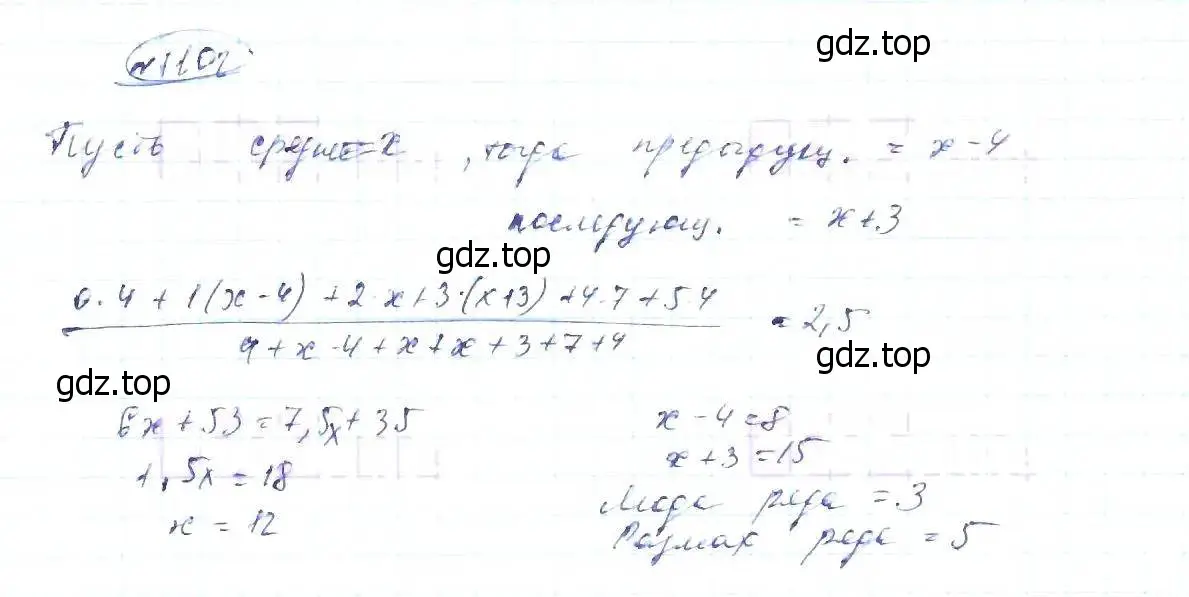 №1102
gdz.top
Пусть средне=x, тогда предыдущ. = x-4
последующ. = x+3
gdz.top
0·4+1(x-4)+2·x+3·(x+3)+4·7+5·4
= 2,5
4+x-4+x+x+3+7+4
gdz.top
gdz.top
6x+53=7,5x+35
x-4=8
1,5x=18
x+3=15
x=12
Мода ряда =3
Размах ряда =5